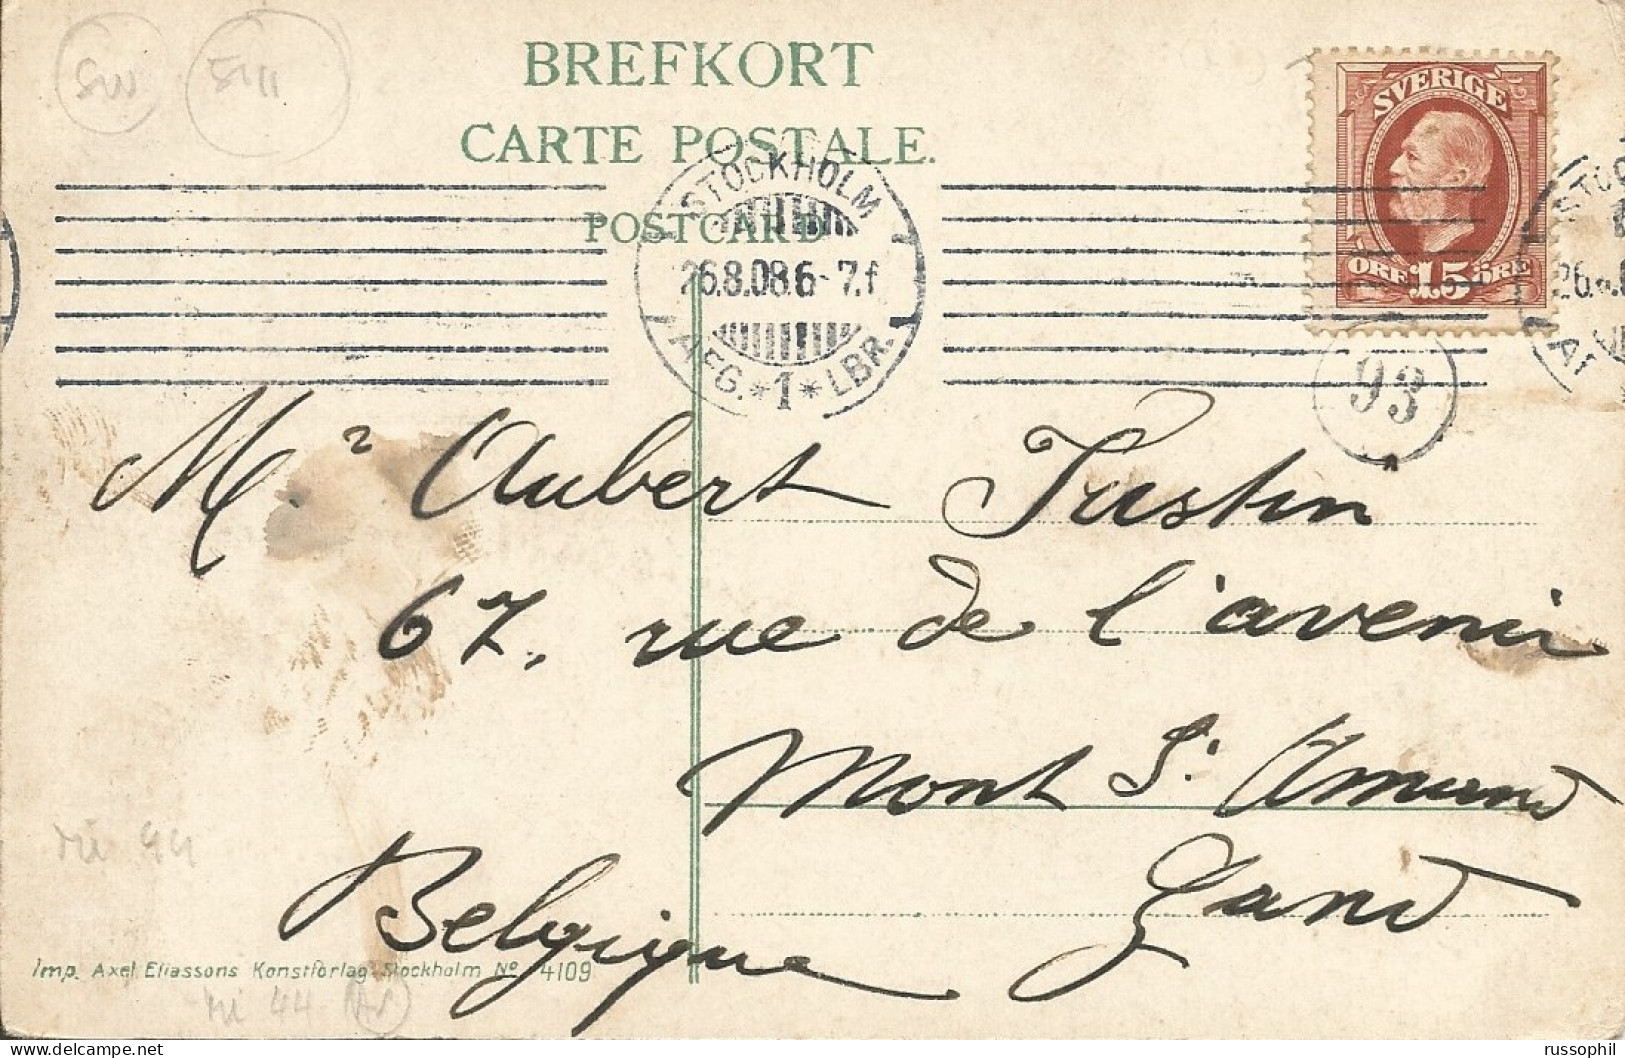 BREFKORT
CARTE POSTALE.
POSTCARD
SVERIGE
ÖRE 15 ÖRE
STOCKHOLM
26.8.08.6-7.f
AFG. *1* LBR.
93
Mr Aubert Justin
67, rue de l'avenir
Mont St Amand
Gand
Belgique
Imp. Axel Eliassons Konstförlag Stockholm No 4109
mi 44
mi 44
russophil